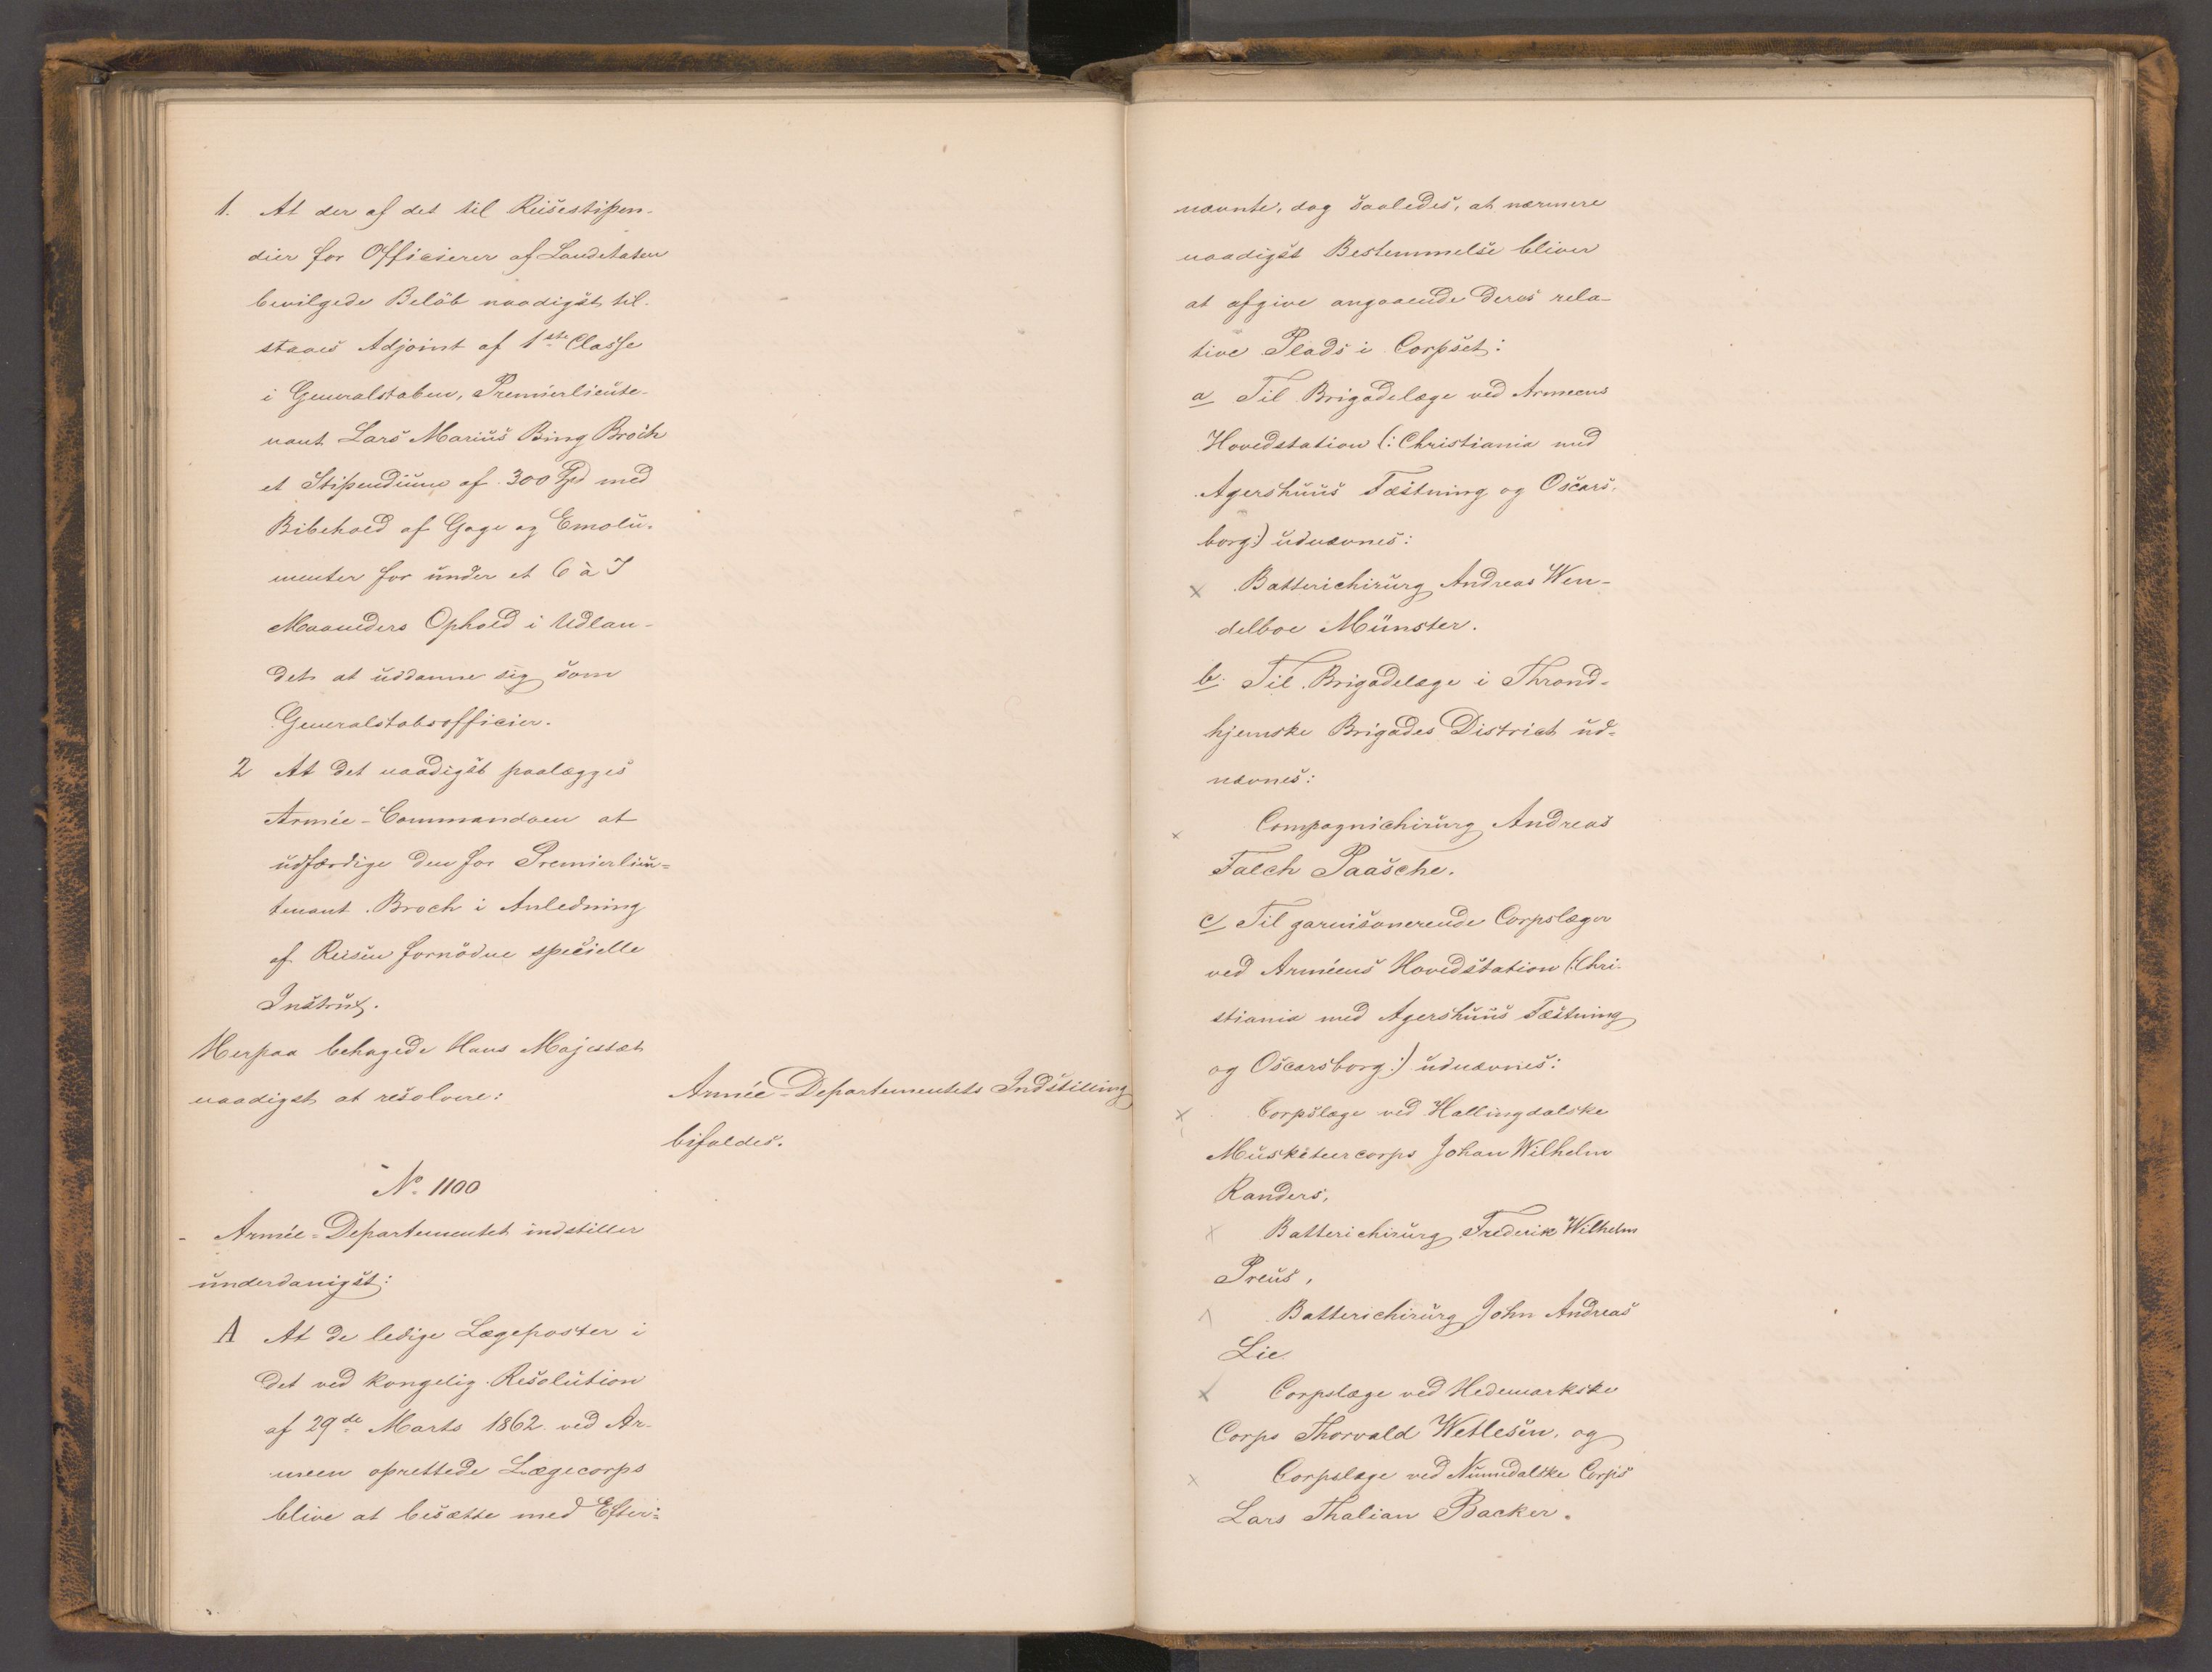 1. At der af det til Reisestipen-
dier for Officierer af Landetaten
bevilgede Beløb naadigst til-
staaes Adjoint af 1ste Classe
i Generalstaben, Premierlieute-
nant Lars Marius Bing Broch
et Stipendium af 300 Spd med
Bibehold af Gage og Emolu-
menter for under et 6 à 7
Maaneders Ophold i Udlan-
det at uddanne sig som
Generalstabsofficier.
2 At det naadigst paalægges
Armée-Commandoen at
udfærdige den for Premierlieu-
tenant Broch i Anledning
af Reisen fornødne specielle
Instrux.
Herpaa behagede Hans Majestæt
naadigst at resolvere:
Armée-Departementets Indstilling
bifaldes.
No. 1100
Armée-Departementet indstiller
underdanigst:
A At de ledige Lægeposter i
det ved kongelig Resolution
af 29de Marts 1862 ved Ar-
meen oprettede Lægecorps
blive at besætte med Efter-
nævnte, dog saaledes, at nærmere
naadigst Bestemmelse bliver
at afgive angaaende deres rela-
tive Plads i Corpset:
a Til Brigadelæge ved Armeens
Hovedstation (: Christiania med
Agershuus Fæstning og Oscars-
borg:) udnævnes:
Batterichirurg Andreas Wen-
delboe Münster.
b. Til Brigadelæge i Thrond-
hjemske Brigades District ud-
nævnes:
Compagnichirurg Andreas
Falch Paasche.
c Til garnisonerende Corpslæger
ved Arméens Hovedstation (: Chri-
stiania med Agershuus Fæstning
og Oscarsborg:) udnævnes:
Corpslæge ved Hallingdalske
Musketeercorps Johan Wilhelm
Randers,
Batterichirurg Frederik Wilhelm
Preus,
Batterichirurg John Andreas
Lie
Corpslæge ved Hedemarkske
Corps Thorvald Wetlesen, og
Corpslæge ved Numedalske Corps
Lars Thalian Backer.